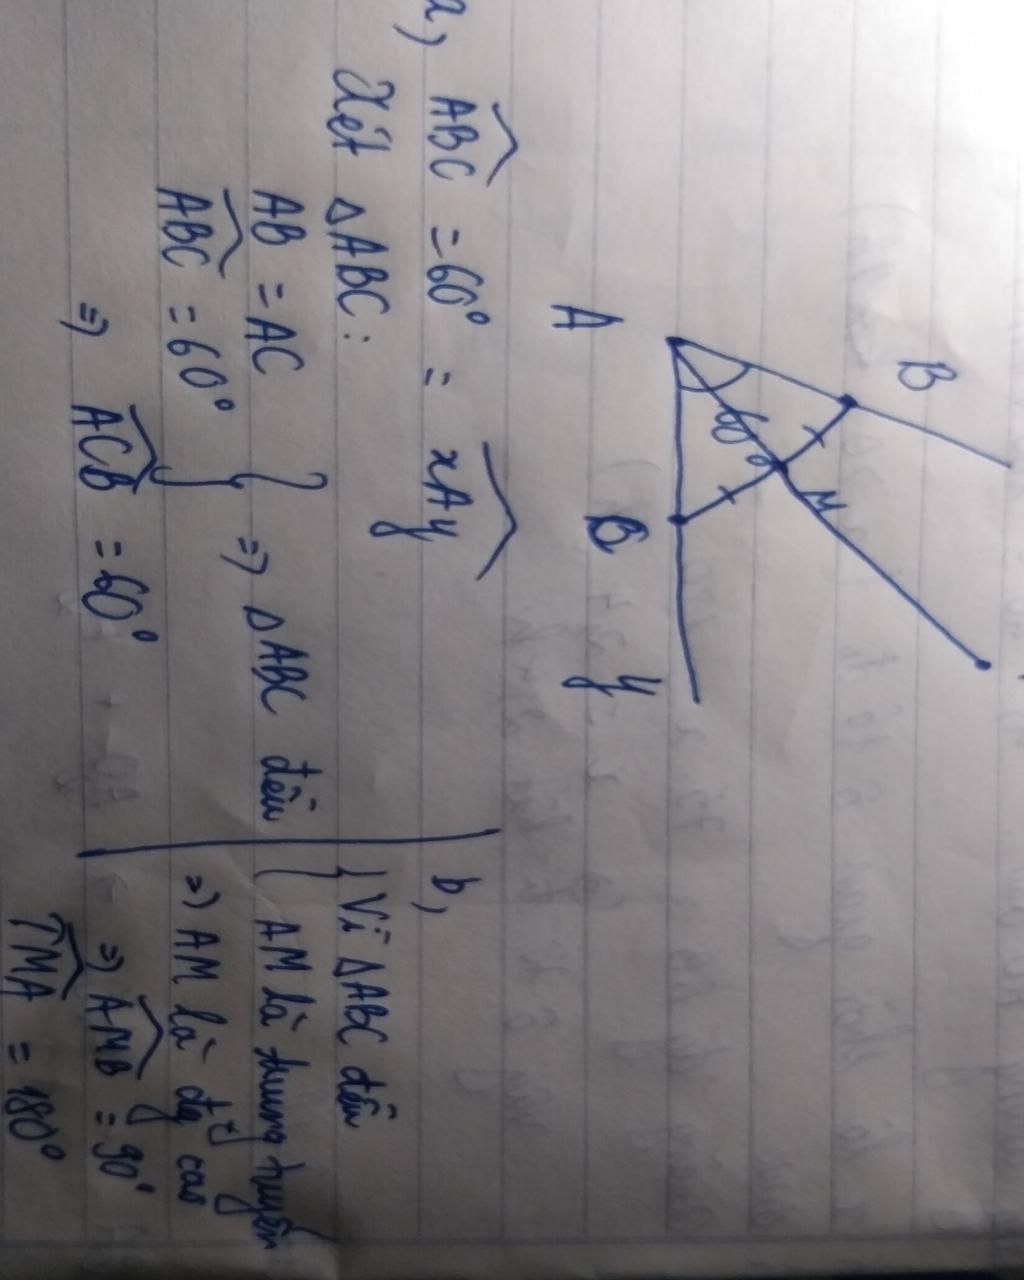 B
A
60°
M
B
y
a, ABC = 60° = xAy
Xét △ABC:
AB = AC
ABC = 60° } => △ABC đều
=> ACB = 60°
b,
Vì △ABC đều
AM là trung tuyến
=> AM là đg cao
=> AMB = 90°
TMA = 180°